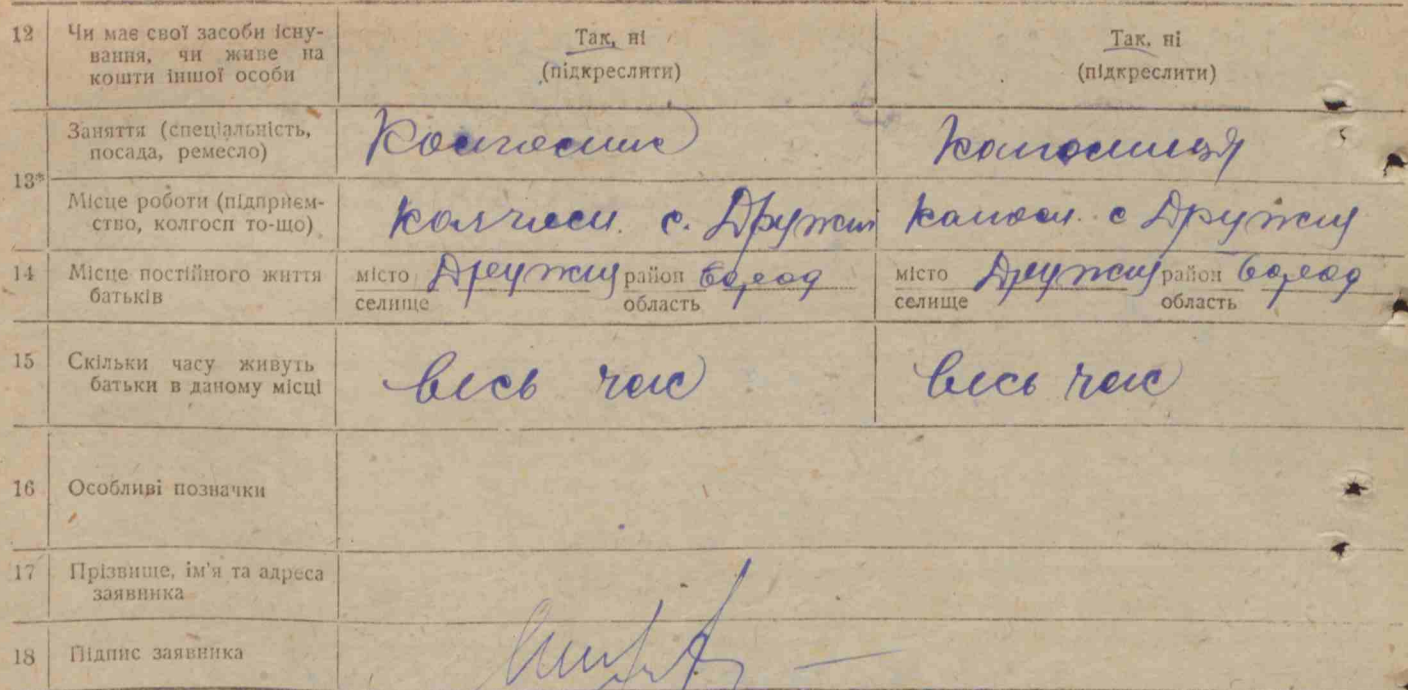 12 Чи має свої засоби існу-
вання, чи живе на
кошти іншої особи
Так, ні
(підкреслити)
Так, ні
(підкреслити)
13*
Заняття (спеціальність,
посада, ремесло)
Колгоспник
колгоспниця
Місце роботи (підприєм-
ство, колгосп то-що)
колгосп. с. Дружня
колгосп. с Дружня
14 Місце постійного життя
батьків
місто Дружня район Бород
селище область
місто Дружня район Бород
селище область
15 Скільки часу живуть
батьки в даному місці
весь час
весь час
16 Особливі позначки
17 Прізвище, ім'я та адреса
заявника
18 Підпис заявника